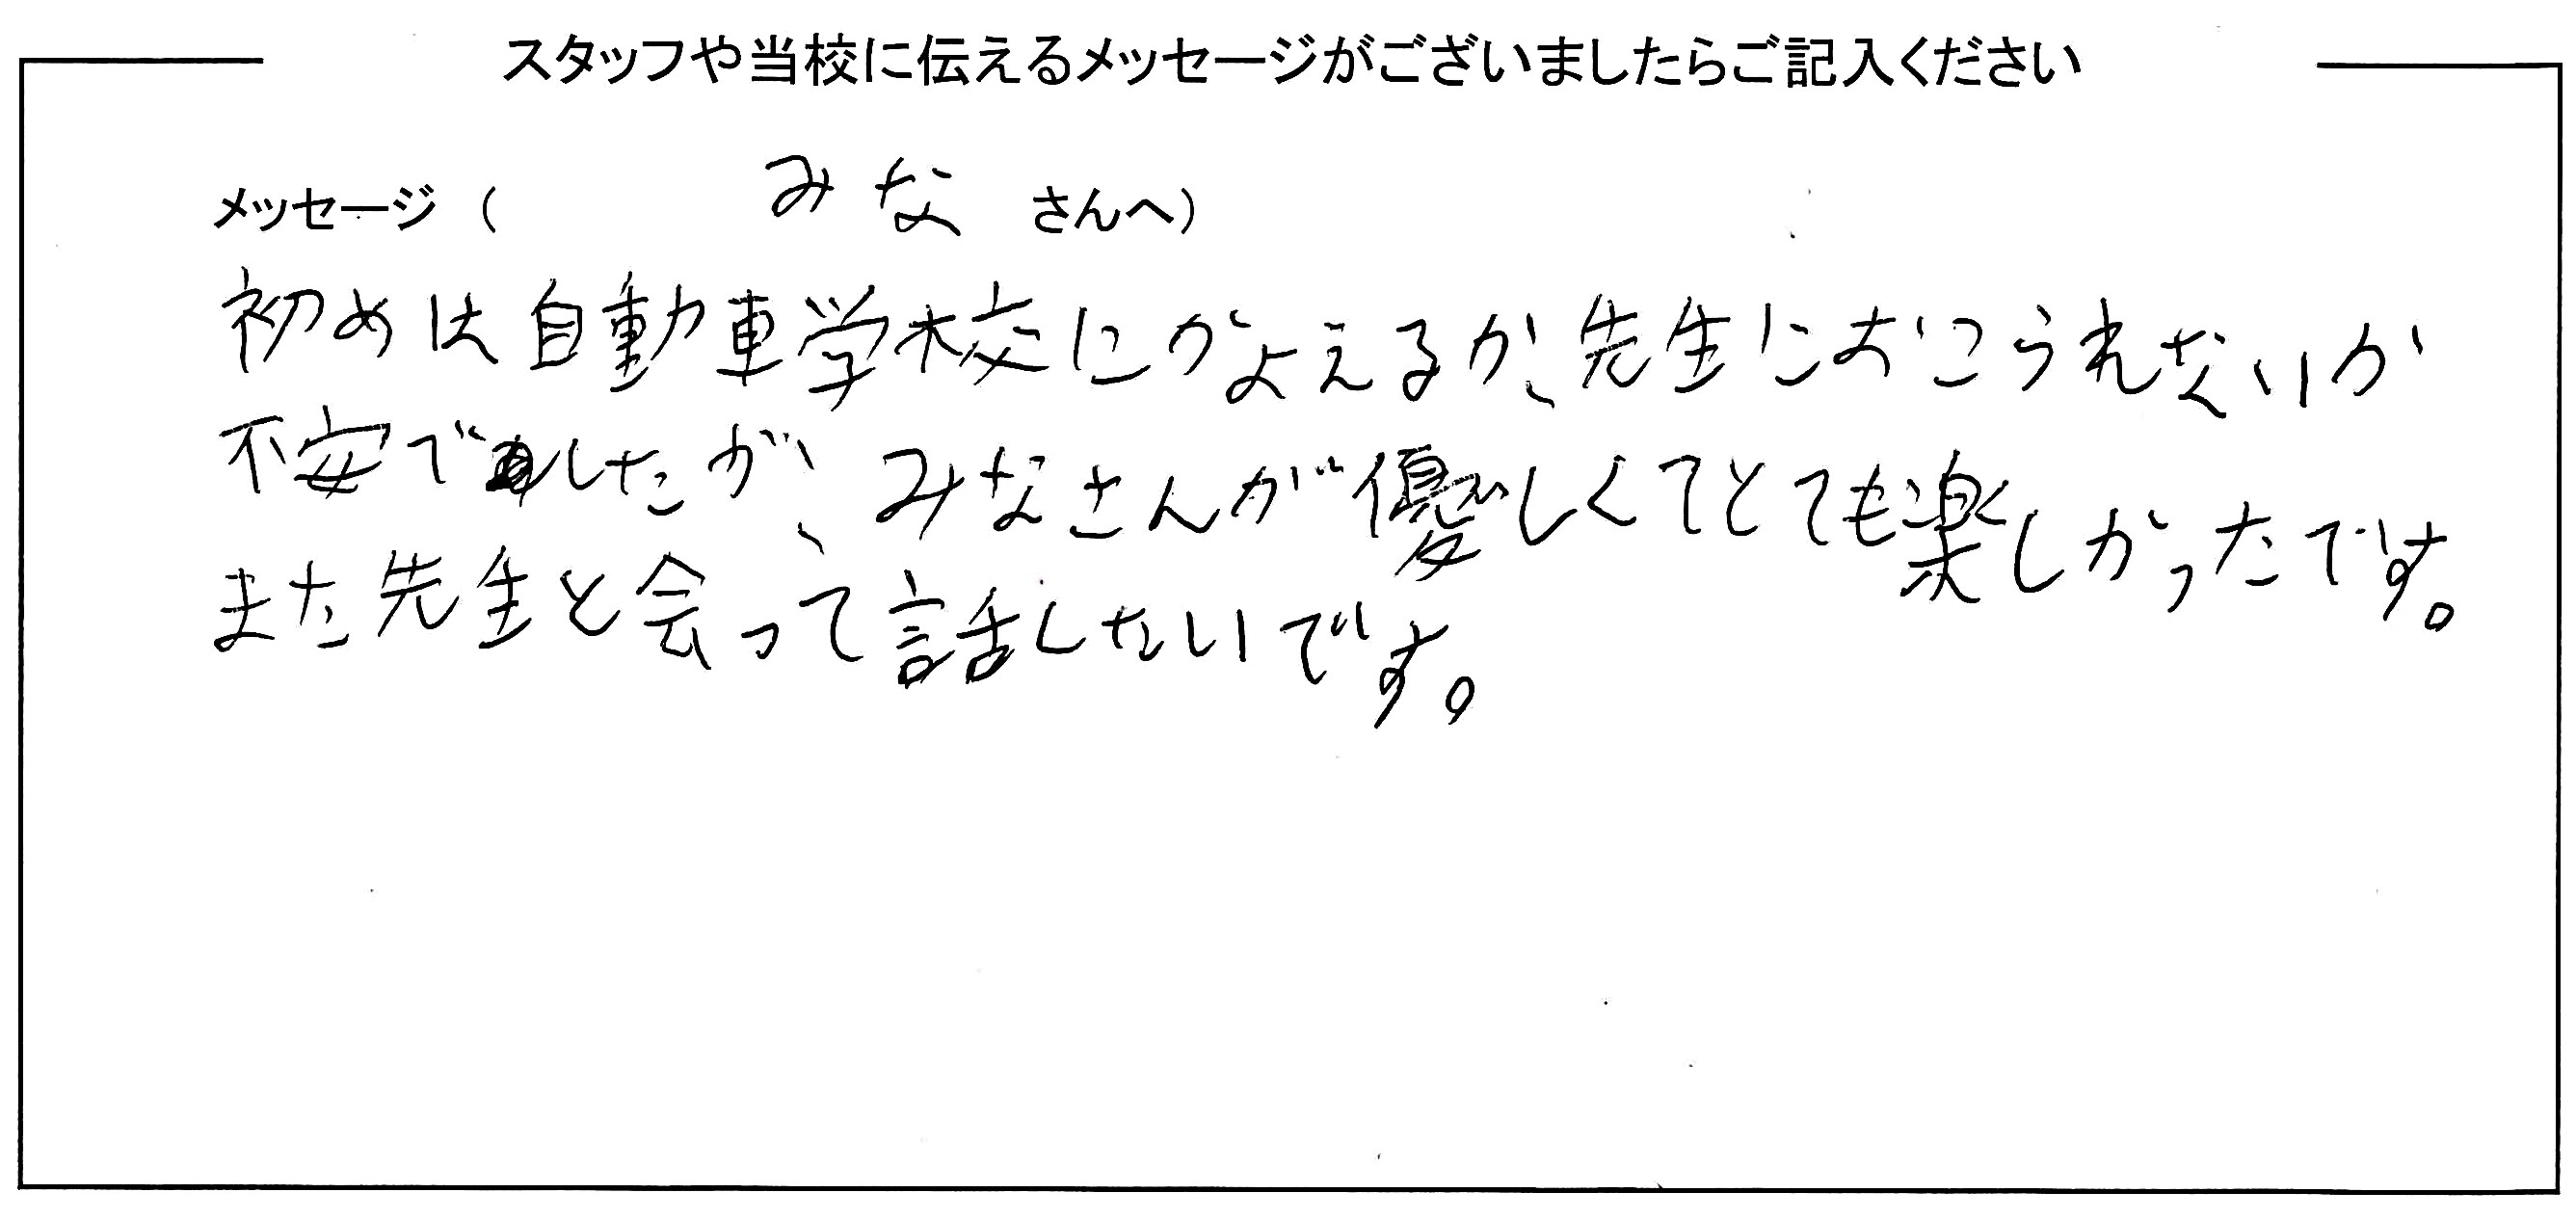 スタッフや当校に伝えるメッセージがございましたらご記入ください
メッセージ（ みな さんへ）
初めは自動車学校にかよえるか、先生におこられないか
不安でしたが、みなさんが優しくてとても楽しかったです。
また先生と会って話したいです。